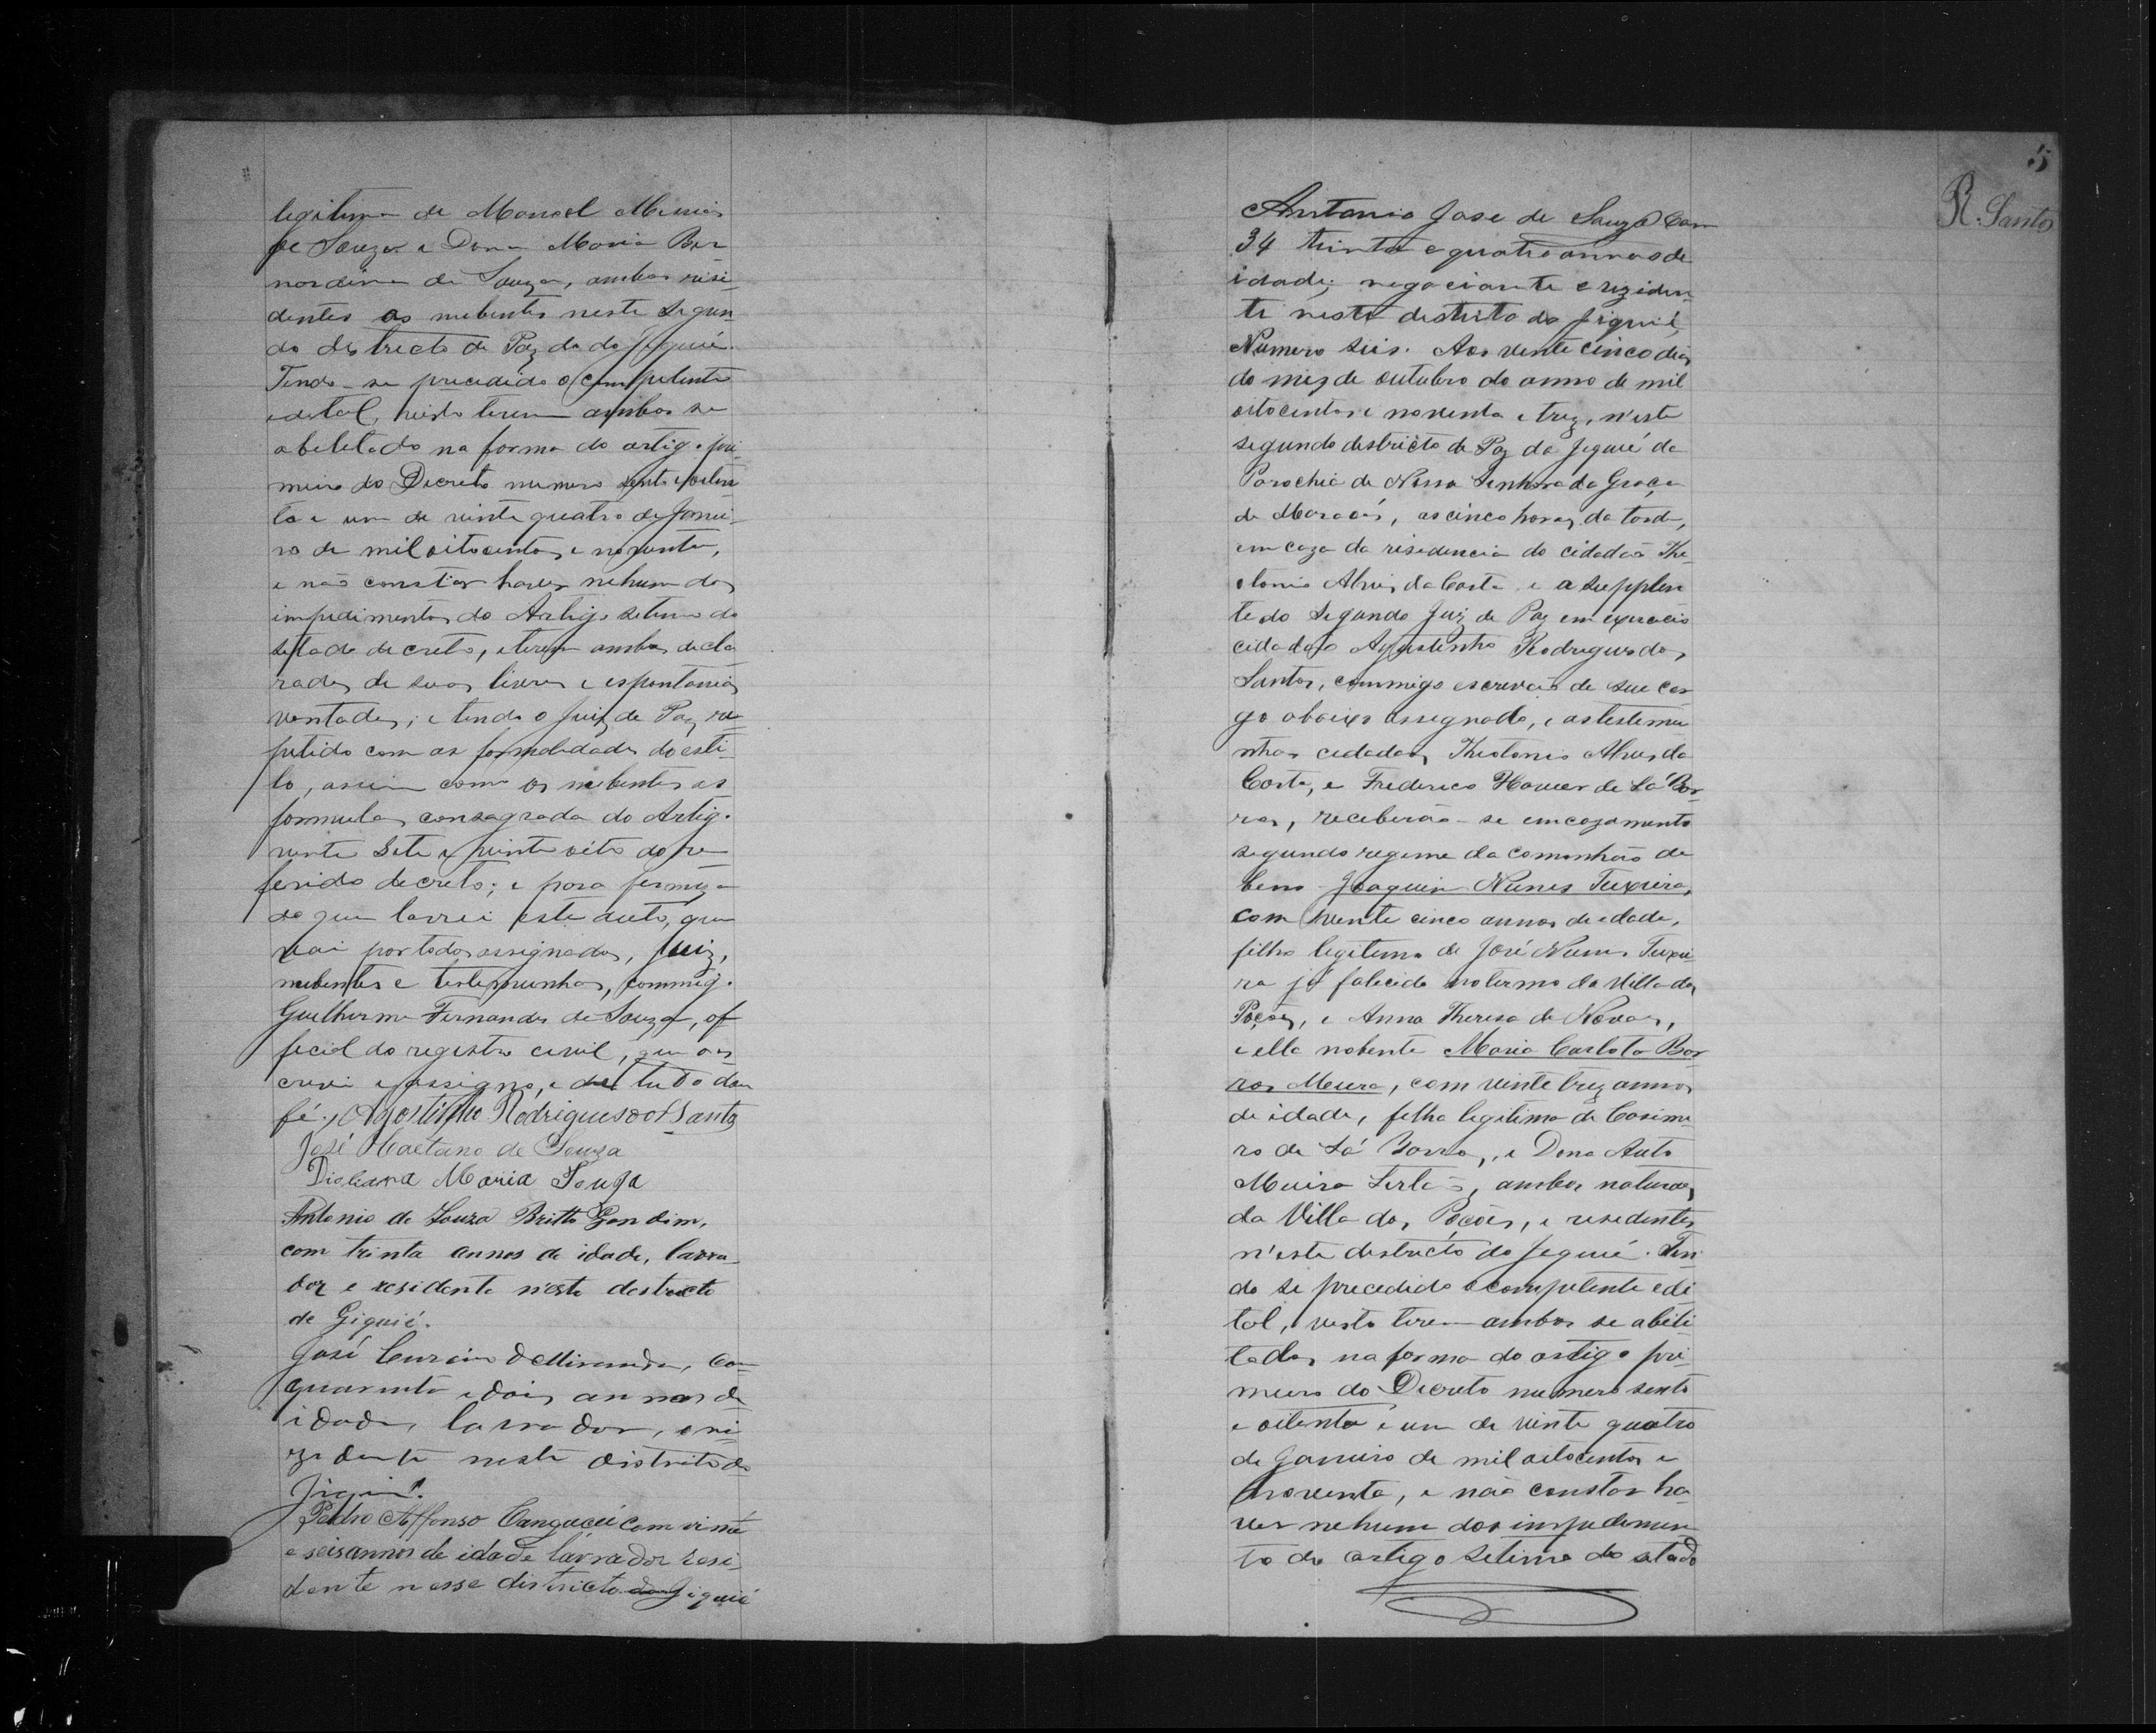 legitima de Manoel Messias
de Souza e Dona Maria Ber
nardina de Souza, ambos risi-
dentes os nubentes neste segun
do destricto de Paz do do Jequié.
Tendo-se precedido o competente
edital, visto terem ambos se
abeletado na forma do artigo pri
meiro do Decreto numero sento e oiten
ta e um de vinte quatro de Janei-
ro de mil oitocentos e noventa,
e não constar haver nehum dos
impedimentos do Artigo setimo do
sitado decreto, e terem ambos decla
rados de suas livres e espontanias
vontades; e tendo o Juiz de Paz re
petido com as formalidades do esti-
lo, assim como os nubentes as
formulas consagrada do Artigo
vinte sete e vinte oito do re-
ferido decreto; e para firmeza
do que lavrei este auto, que
vai por todos assignados, Juiz,
nubentes e testemunhas, commigo
Guilherme Fernandes de Souza, of
ficial do registro civil, que o es
crevi e assigno, e de tudo dou
fé. Agostinho Rodrigues dos Santos
José Caetano de Souza
Maria Souza
Antonio de Souza Britto Gondim,
com trinta annos de idade, lavra-
dor e residente n'este destricto
de Giquié.
José de Miranda, com
quarenta e dois annos de
idade, lavrador, e ri-
zidente neste distrito do
Jiquié.
Pedro Affonso Cangucú com vinte
e seis annos de idade lavrador resi-
dente nesse districto do Giquié
5
R. Santos
Antonio Jose de Souza Com
34 trinta e quatro annos de
idade, negociante e reziden
te nesto destrito do Jiquié,
Numero seis. Aos vente cinco dias
do mez de outubro do anno de mil
oitocentos e noventa e trez, n'este
segundo destricto de Paz do Jequié da
Parochia de Nossa Senhora da Graça
de Maracás, as cinco horas da tarde,
em caza da risidencia do cidadão The
otonio Alves da Costa, e o supplen
te do segundo Juiz de Paz em exercicio
cidadão Agostinho Rodrigues dos
Santos, commigo escrivão de seu car
go abaixo assegnado, e as testemu
nhas cidadãos Theotonio Alves da
Costa, e Frederico Xavier de Sá Bar-
ros, receberão-se em cazamento
segundo regime da comonhão de
bens Joaquim Nunes Teixeira,
com vente cinco annos de edade,
filho legitimo de José Nunes Teixei
ra já falecido no termo da Villa dos
Poções, e Anna Theresa de Novaes,
e ella nobente Maria Carlota Bar
ros Meira, com vinte trez annos
de idade, filha legitima de Casimi
ro de Sá Barros, e Dona Auta
Meira Sertão, ambos naturaes
da Villa dos Poções, e residentes
n'este destricto do Jequié. Ten
do se precedido o competente edi
tal, visto terem ambos se abili
tados na forma do artigo pri-
meiro do Decreto numero sento
e oitenta e um de vinte quatro
de Janeiro de mil oitocentos e
noventa, e não constar ha-
ver nehum dos impedimen
to do artigo setimo do sitado